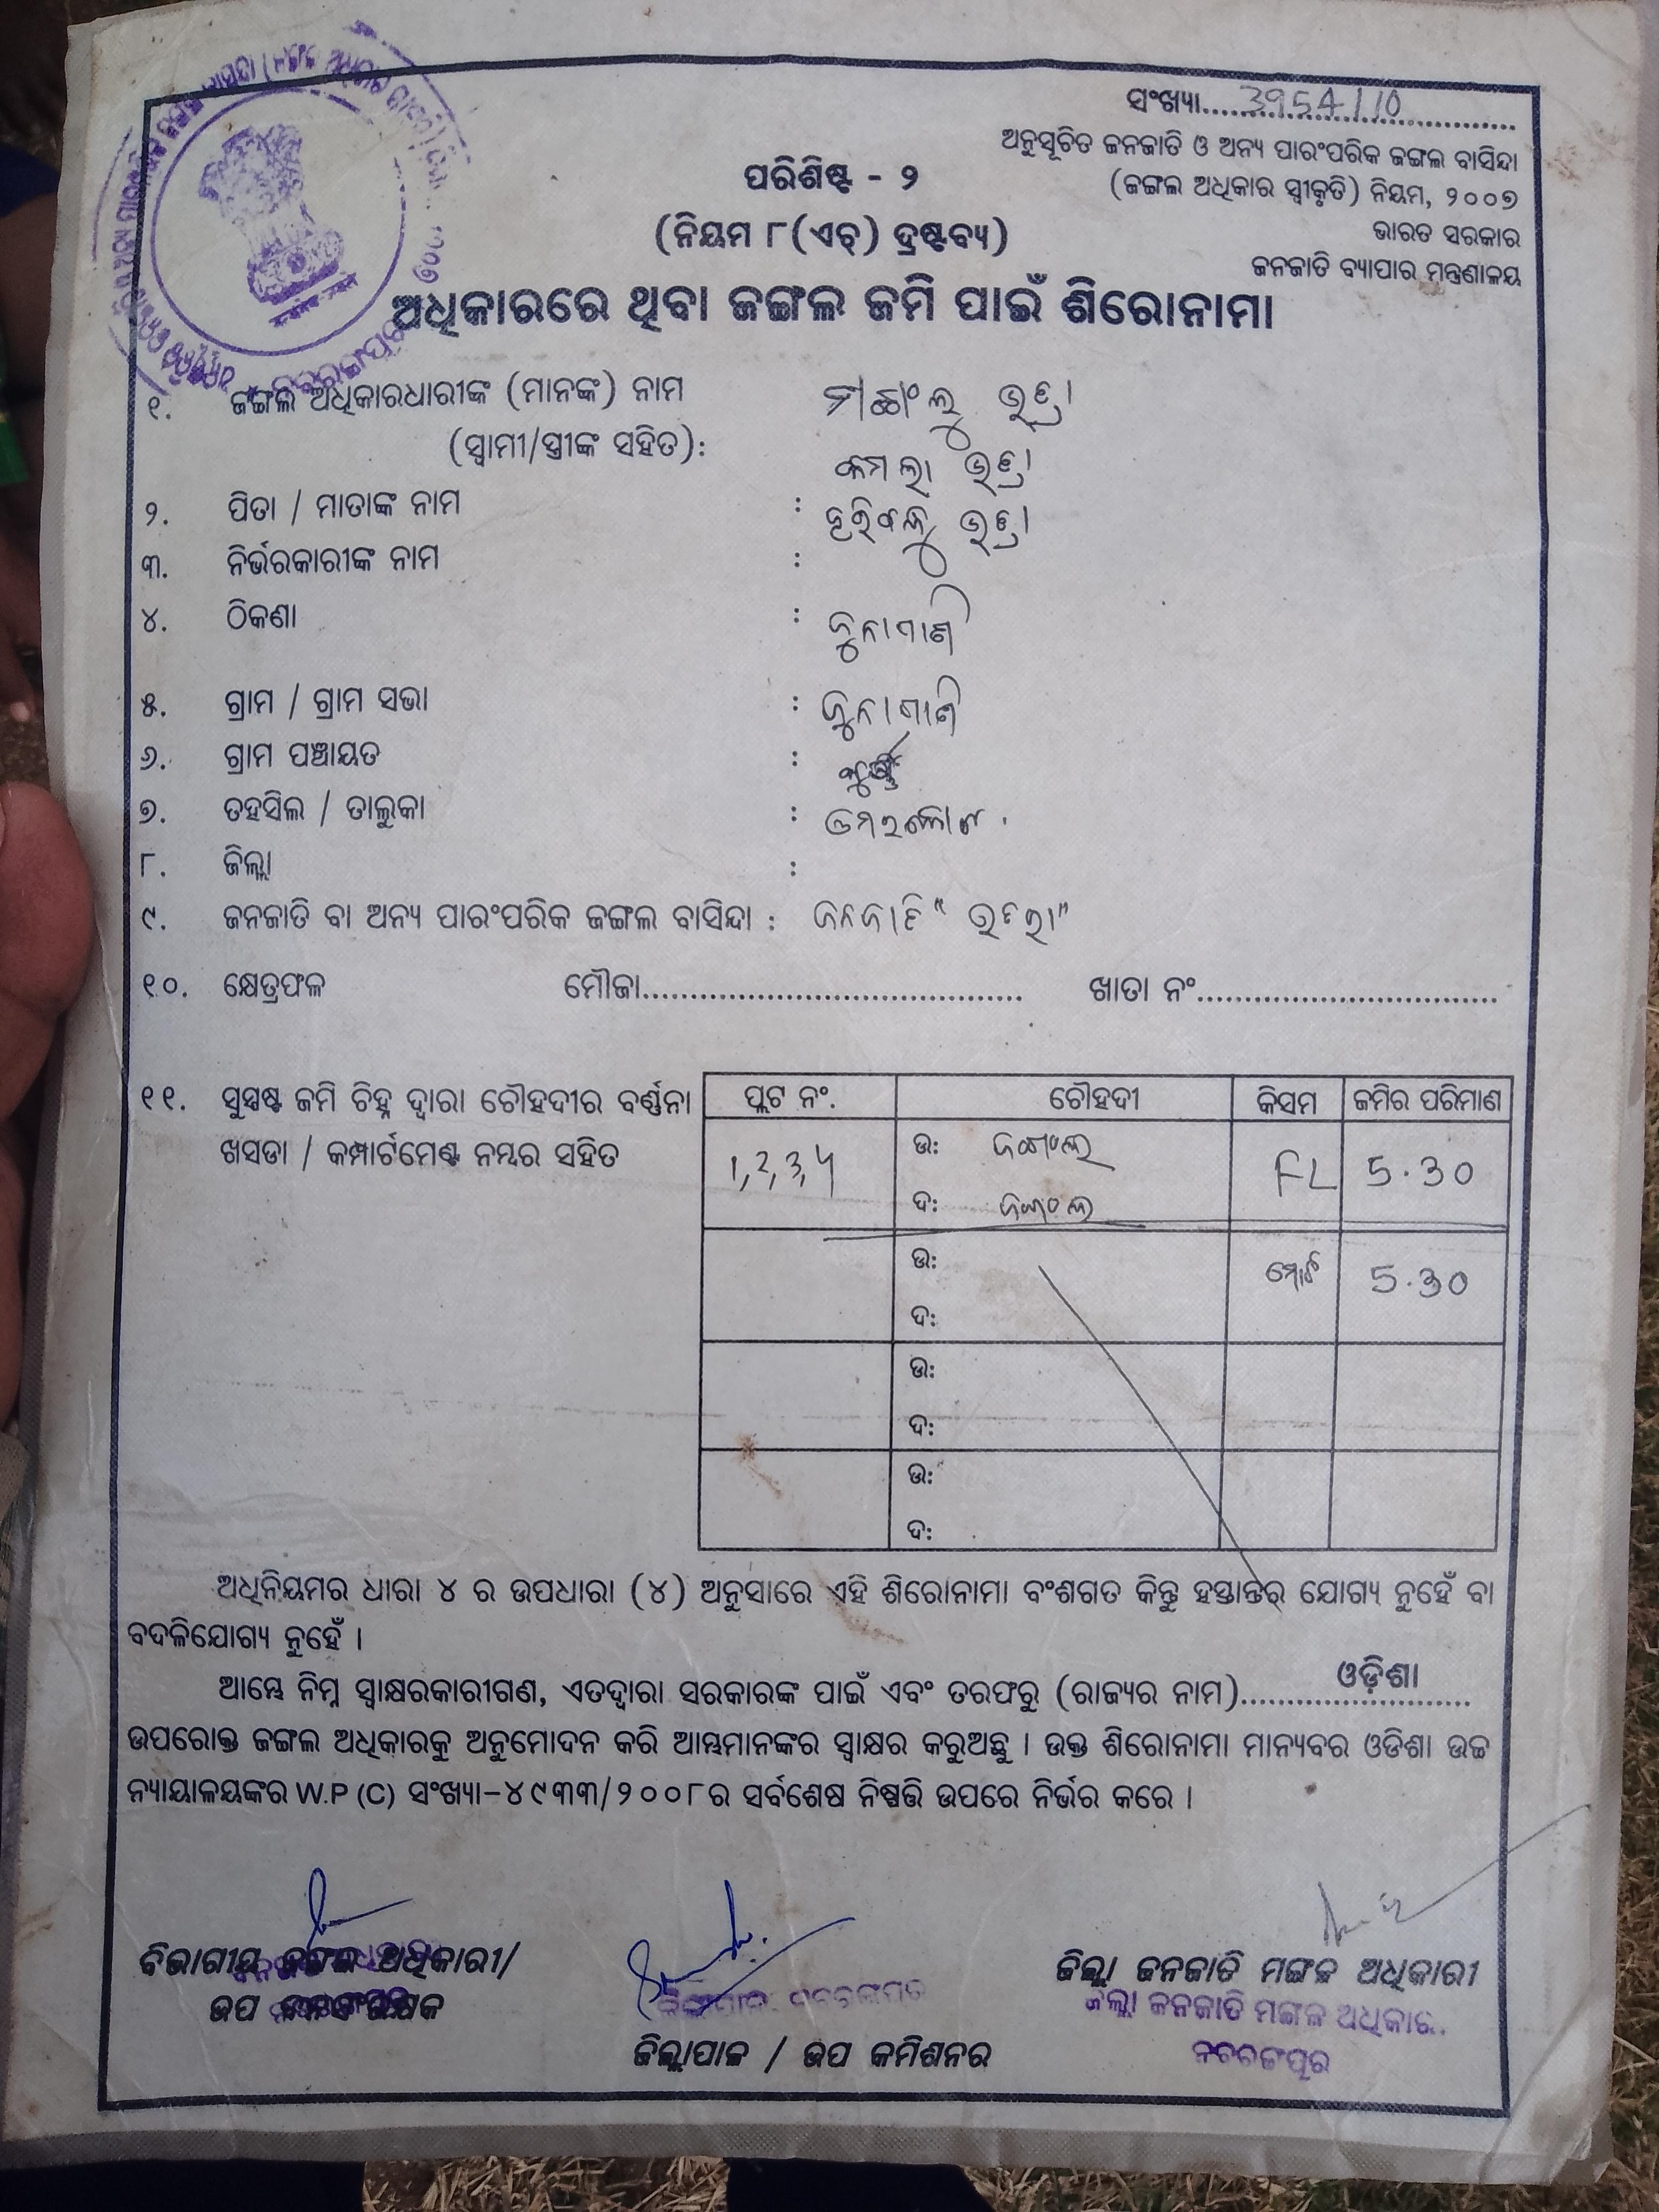 ସଂଖ୍ୟା....3954/10
ଅନୁସୂଚିତ ଜନଜାତି ଓ ଅନ୍ୟ ପାରଂପରିକ ଜଙ୍ଗଲ ବାସିନ୍ଦା
(ଜଙ୍ଗଲ ଅଧିକାର ସ୍ୱୀକୃତି) ନିୟମ, ୨୦୦୭
ଭାରତ ସରକାର
ଜନଜାତି ବ୍ୟାପାର ମନ୍ତ୍ରଣାଳୟ
ପରିଶିଷ୍ଟ - ୨
(ନିୟମ ୮(ଏଚ୍) ଦ୍ରଷ୍ଟବ୍ୟ)
ଅଧିକାରରେ ଥିବା ଜଙ୍ଗଲ ଜମି ପାଇଁ ଶିରୋନାମା
୧. ଜଙ୍ଗଲ ଅଧିକାରଧାରୀଙ୍କ (ମାନଙ୍କ) ନାମ
(ସ୍ୱାମୀ/ସ୍ତ୍ରୀଙ୍କ ସହିତ):
କମଲା
୨. ପିତା / ମାତାଙ୍କ ନାମ :
୩. ନିର୍ଭରକାରୀଙ୍କ ନାମ :
୪. ଠିକଣା : ଜୁନାପାଣି
୫. ଗ୍ରାମ / ଗ୍ରାମ ସଭା : ଜୁନାପାଣି
୬. ଗ୍ରାମ ପଞ୍ଚାୟତ :
୭. ତହସିଲ / ତାଲୁକା : ଉମରକୋଟ
୮. ଜିଲ୍ଲା :
୯. ଜନଜାତି ବା ଅନ୍ୟ ପାରଂପରିକ ଜଙ୍ଗଲ ବାସିନ୍ଦା : ଜନଜାତି
୧୦. କ୍ଷେତ୍ରଫଳ ମୌଜା.................... ଖାତା ନଂ....................
୧୧. ସୁସ୍ପଷ୍ଟ ଜମି ଚିହ୍ନ ଦ୍ୱାରା ଚୌହଦୀର ବର୍ଣ୍ଣନା
ଖସଡା / କମ୍ପାର୍ଟମେଣ୍ଟ ନମ୍ବର ସହିତ
ପ୍ଲଟ ନଂ. ଚୌହଦୀ କିସମ ଜମିର ପରିମାଣ
1, 2, 3, 4 ଉ: ଜଙ୍ଗଲ FL 5.30
ଦ: ଜଙ୍ଗଲ
ଉ: ମୋଟ 5.30
ଦ:
ଉ:
ଦ:
ଉ:
ଦ:
ଅଧିନିୟମର ଧାରା ୪ ର ଉପଧାରା (୪) ଅନୁସାରେ ଏହି ଶିରୋନାମା ବଂଶଗତ କିନ୍ତୁ ହସ୍ତାନ୍ତର୍ ଯୋଗ୍ୟ ନୁହେଁ ବା
ବଦଳିଯୋଗ୍ୟ ନୁହେଁ ।
ଆମ୍ଭେ ନିମ୍ନ ସ୍ୱାକ୍ଷରକାରୀଗଣ, ଏତଦ୍ୱାରା ସରକାରଙ୍କ ପାଇଁ ଏବଂ ତରଫରୁ (ରାଜ୍ୟର ନାମ)....ଓଡ଼ିଶା....
ଉପରୋକ୍ତ ଜଙ୍ଗଲ ଅଧିକାରକୁ ଅନୁମୋଦନ କରି ଆମ୍ଭମାନଙ୍କର ସ୍ୱାକ୍ଷର କରୁଅଛୁ । ଉକ୍ତ ଶିରୋନାମା ମାନ୍ୟବର ଓଡିଶା ଉଚ୍ଚ
ନ୍ୟାୟାଳୟଙ୍କର W.P (C) ସଂଖ୍ୟା-୪୯୩୩/୨୦୦୮ର ସର୍ବଶେଷ ନିଷ୍ପତ୍ତି ଉପରେ ନିର୍ଭର କରେ ।
ବିଭାଗୀୟ ଜଙ୍ଗଲ ଅଧିକାରୀ/
ଉପ ବନସଂରକ୍ଷକ
ଜିଲ୍ଲାପାଳ / ଉପ କମିଶନର
ଜିଲ୍ଲା ଜନଜାତି ମଙ୍ଗଳ ଅଧିକାରୀ
ଜିଲ୍ଲା ଜନଜାତି ମଙ୍ଗଳ ଅଧିକାରୀ
ନବରଙ୍ଗପୁର